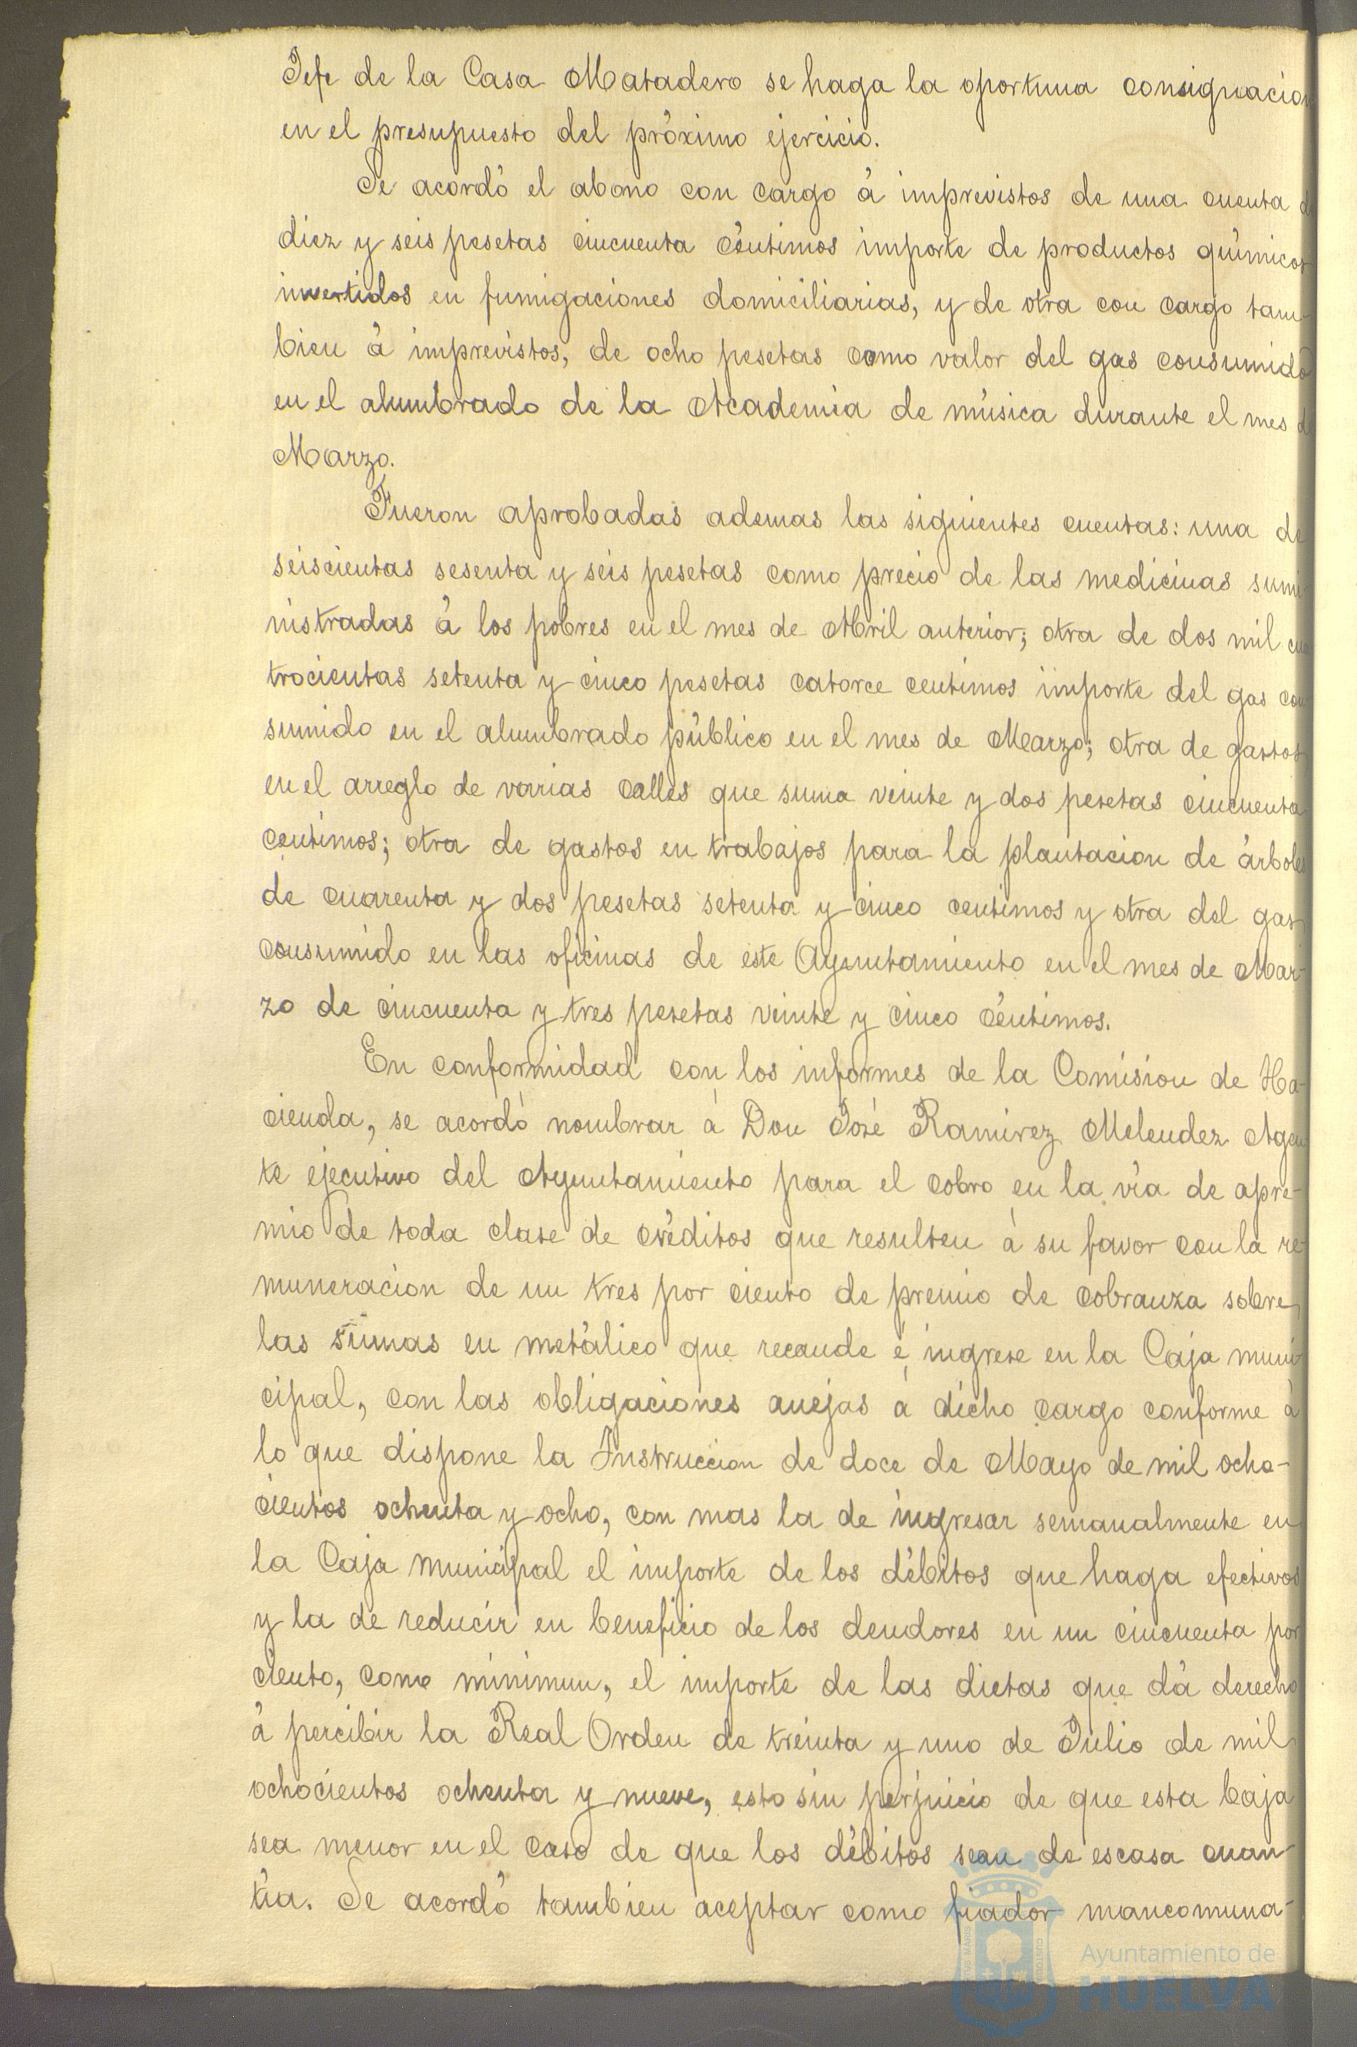 Jefe de la Casa Matadero se haga la oportuna consignacion
en el presupuesto del próximo ejercicio.
Se acordó el abono con cargo á imprevistos de una cuenta d
diez y seis pesetas cincuenta céntimos importe de productos químicos
invertidos en fumigaciones domiciliarias, y de otra con cargo tam-
bien á imprevistos, de ocho pesetas como valor del gas consumido
en el alumbrado de la Academia de música durante el mes d
Marzo.
Fueron aprobadas ademas las siguientes cuentas: una de
seiscientas sesenta y seis pesetas como precio de las medicinas sumi
nistradas á los pobres en el mes de Abril anterior; otra de dos mil cua
trocientas setenta y cinco pesetas catorce centimos importe del gas con
sumido en el alumbrado público en el mes de Marzo; otra de gastos
en el arreglo de varias calles que suma veinte y dos pesetas cincuenta
centimos; otra de gastos en trabajos para la plantacion de árboles
de cuarenta y dos pesetas setenta y cinco centimos y otra del gas
consumido en las oficinas de este Ayuntamiento en el mes de Mar-
zo de cincuenta y tres pesetas veinte y cinco céntimos.
En conformidad con los informes de la Comision de Ha-
cienda, se acordó nombrar á Don José Ramirez Melendez Agen
te ejecutivo del Ayuntamiento para el cobro en la vía de apre-
mio de toda clase de créditos que resulten á su favor con la re-
muneracion de un tres por ciento de premio de cobranza sobre
las sumas en metálico que recaude é ingrese en la Caja muni-
cipal, con las obligaciones anejas á dicho cargo conforme á
lo que dispone la Instruccion de doce de Mayo de mil ocho-
cientos ochenta y ocho, con mas la de ingresar semanalmente en
la Caja municipal el importe de los débitos que haga efectivos
y la de reducir en beneficio de los deudores en un cincuenta por
ciento, como minimun, el importe de las dietas que dá derecho
á percibir la Real Orden de treinta y uno de Julio de mil
ochocientos ochenta y nueve, esto sin perjuicio de que esta baja
sea menor en el caso de que los débitos sean de escasa cuan-
tia. Se acordó tambien aceptar como fiador mancomuna-
Ayuntamiento de
HUELVA